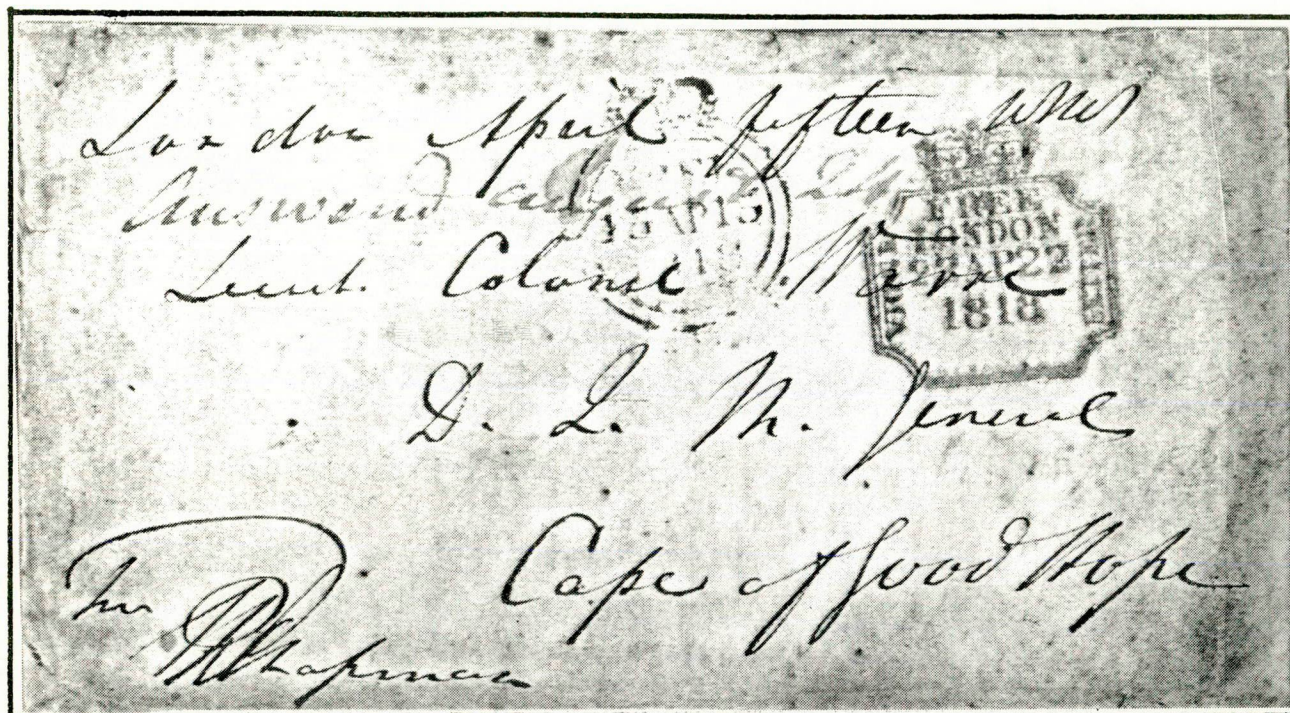 London April fifteen 1818
Answered August 24
Lieut. Colonel Warre
D. Q. M. General
Cape of Good Hope
Chapman
15 AP 15
FREE
LONDON
22 AP 22
1818